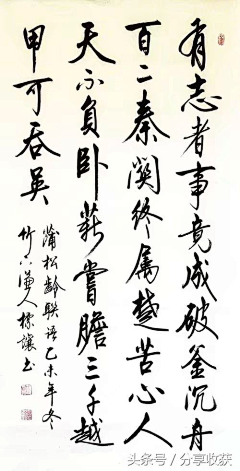 有志者事竟成破釜沉舟
百二秦關終屬楚苦心人
天不負臥薪嘗膽三千越
甲可吞吳
蒲松齡聯語乙未年冬
竹人書
头条号/分享收获